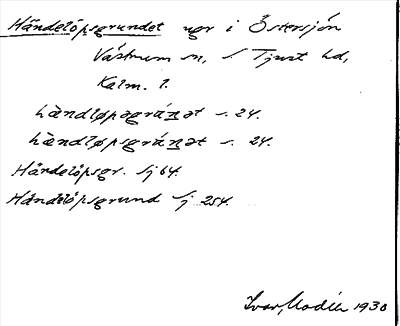 Händelöpsgrundet ugr i Östersjön
Västrum sn, S. Tjust hd,
Kalm. l.
hàndløpsgrán̲ət s. 24.
hàndløpsgrán̲ət s. 24.
Händelöpsgr. Sj 64.
Händelöpsgrund Sj 254.
Ivar Modéer 1930